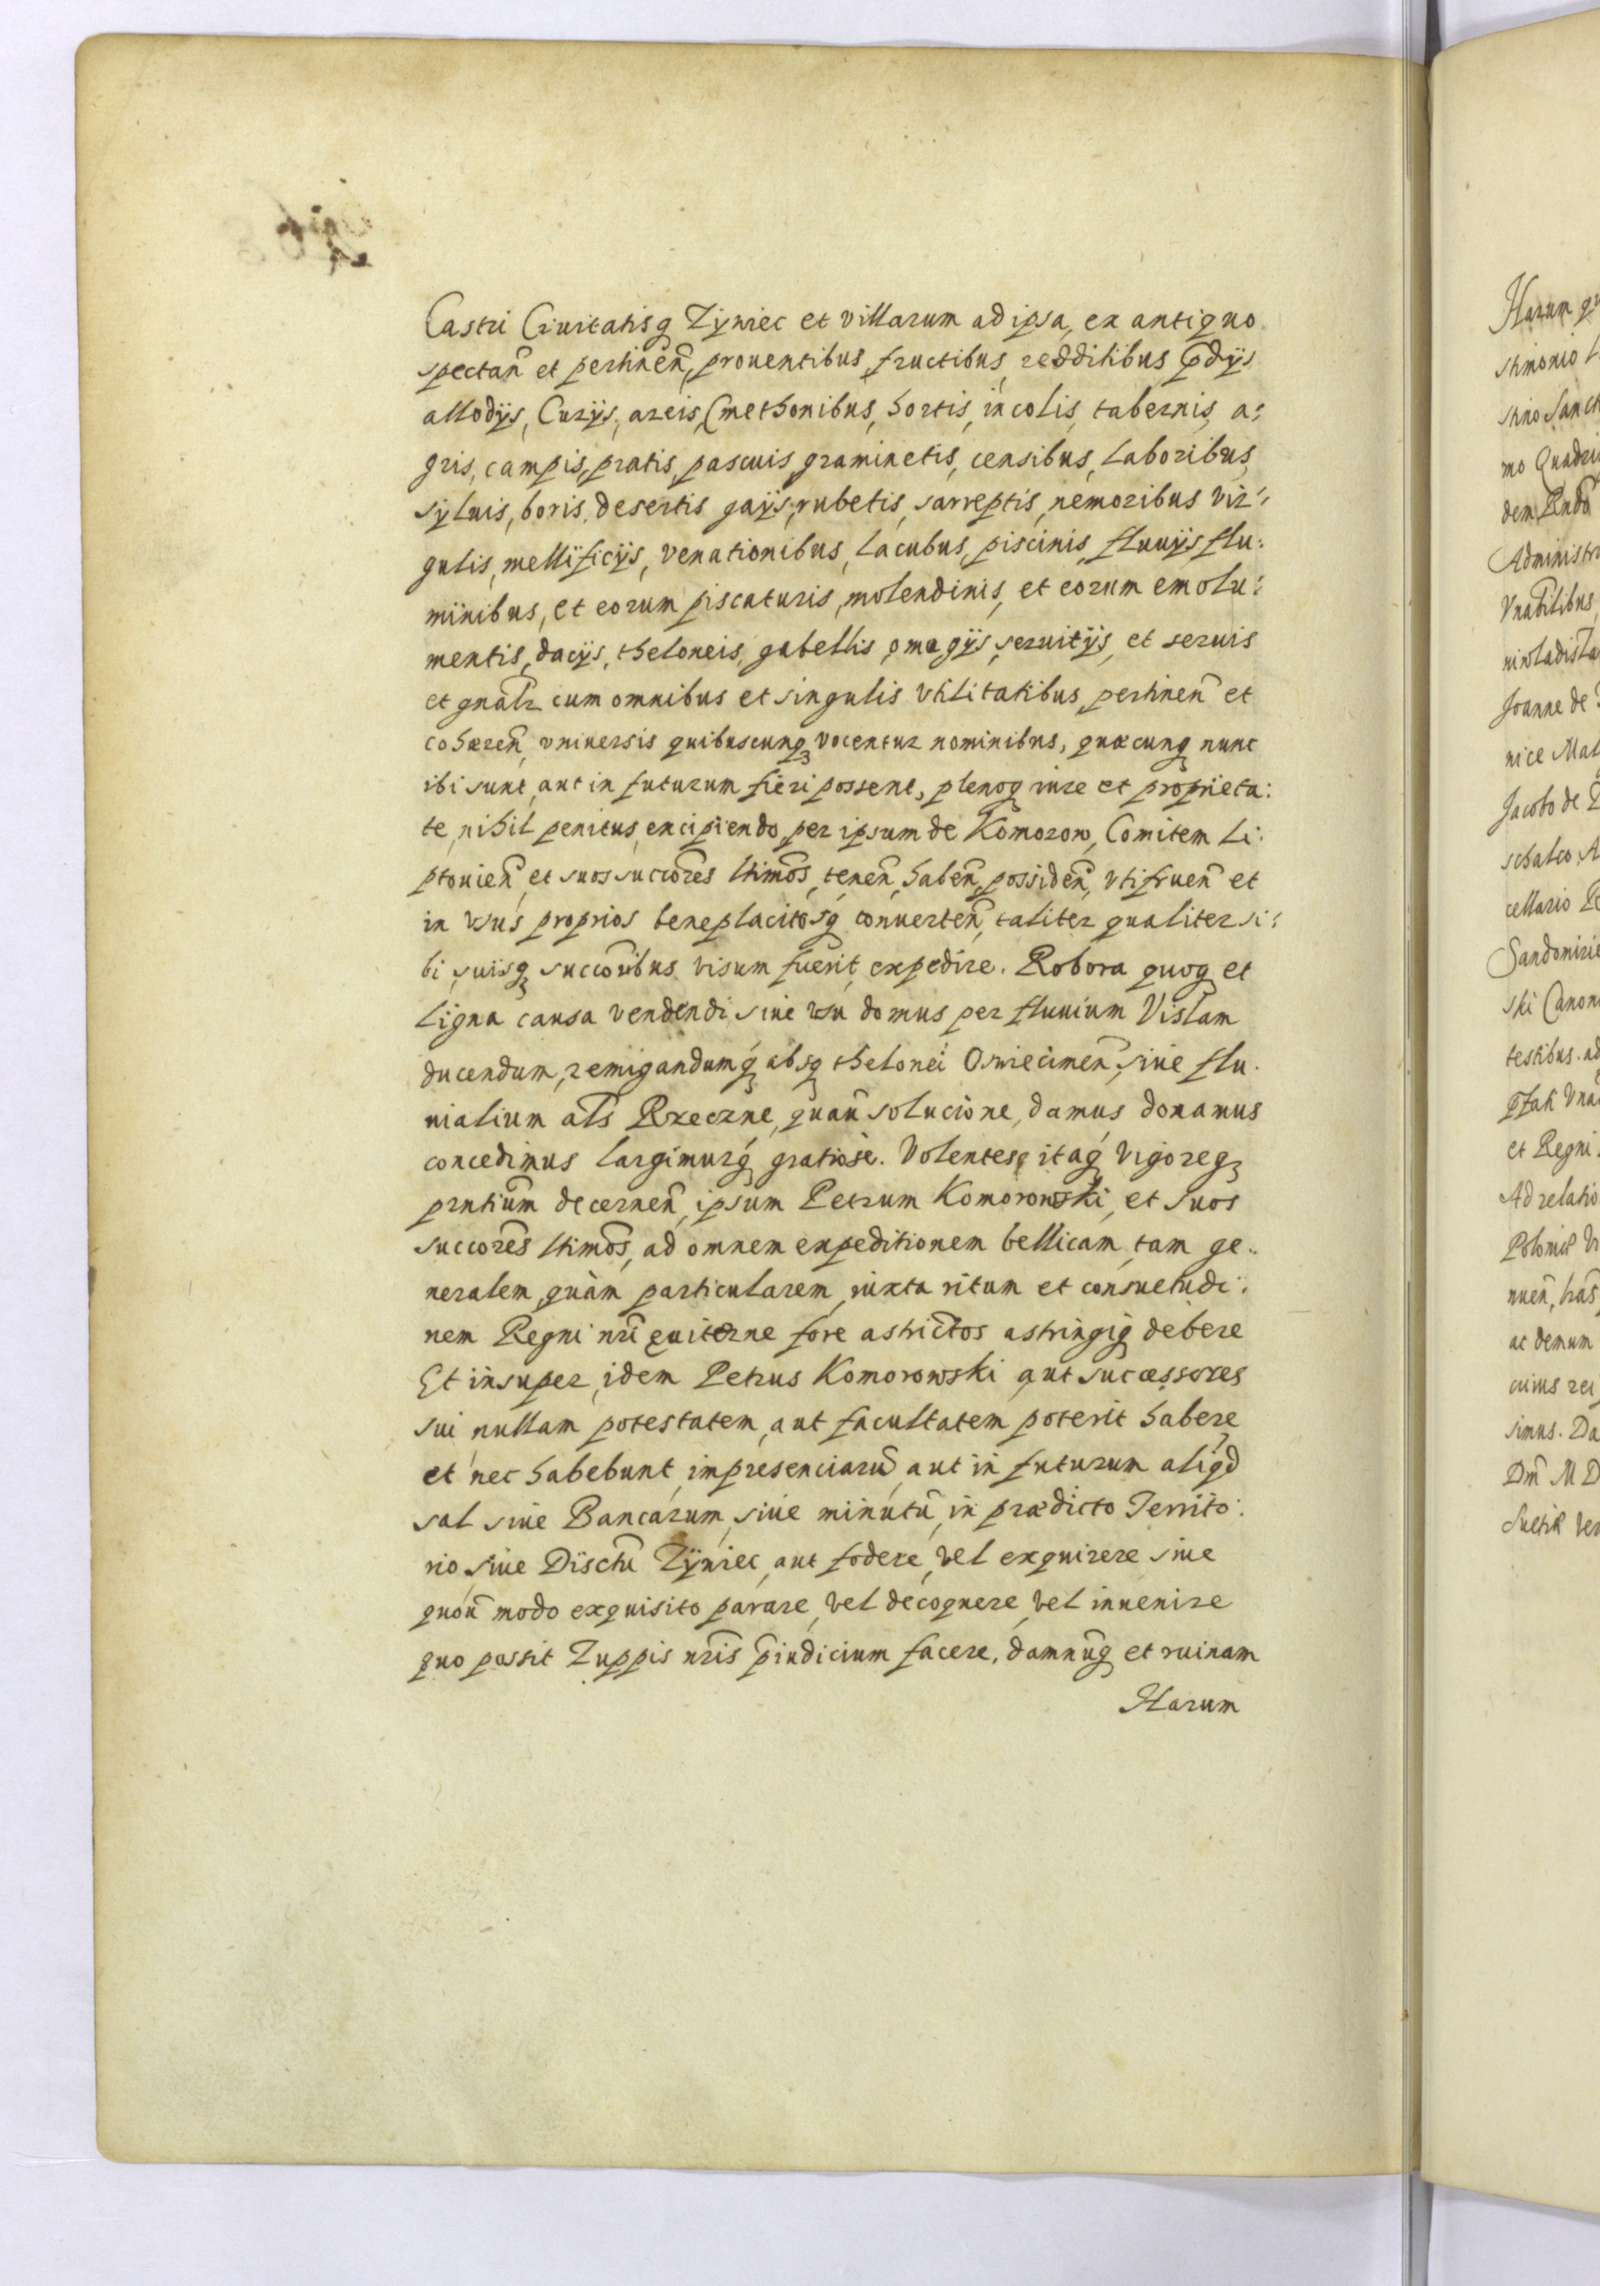 Castri Ciuitatisq Zÿwiec et villarum ad ipsa, ex antiquo
spectañ et pertineñ, prouentibus, fructibus, redditibus p̄dÿs
allodÿs, Curÿs, areis, Cmethonibus, hortis, incolis, tabernis, a:
gris, campis, pratis, pascuis, graminetis, censibus, Laboribus
syluis, boris, desertis, gaÿs, rubetis, sarreptis, nemoribus vir:
gulis, mellificÿs, venationibus, Lacubus, piscinis, fluuÿs flu:
minibus, et eorum piscaturis, molendinis, et eorum emolu:
mentis, dacÿs, theloneis, gabellis, omagÿs, seruitÿs, et seruis
et gnãlr cum omnibus et singulis vtilitatibus, pertineñ et
cohæreñ, vniuersis quibuscunq vocentur nominibus, quæcunq nunc
ibi sunt, aut in futurum fieri possent, plenoq iure et proprieta:
te, nihil penitus excipiendo, per ipsum de Komorow, Comitem Li:
ptouieñ, et suos succores ltimos, teneñ, habeñ, possideñ, vtifrueñ et
in vsus proprios beneplacitosq conuerteñ, taliter qualiter si:
bi, suisq succoribus visum fuerit, expedire. Robora quoq et
Ligna causa vendendi siue vsu domus per fluuium Vislam
ducendum, remigandumq absq thelonei Oswiecimeñ, siue flu:
uialium als Rzeczne, quauis solucione, damus donamus
concedimus Largimurq gratiose. Volentes itaq Vigoreq
pñtium decerneñ, ipsum Petrum Komorowski, et suos
succores ltimos, ad omnem expeditionem bellicam, tam ge:
neralem, quàm particularem, iuxta ritum et consuetudi:
nem Regni nri euiterne fore astrictos astringiq debere
Et insuper, idem Petrus Komorowski aut successores
sui nullam potestatem, aut facultatem poterit habere
et nec habebunt, impresenciarũ, aut in futurum aliqd
sal siue Bancarum, siue minutũ, in prædicto Territo:
rio, siue Disctu Zÿwiec, aut fodere, vel exquirere siue
quouis modo exquisito parare, vel decoquere, vel inuenire
quo possit Zuppis nris p̄iudicium facere, damnũq et ruinam
Harum